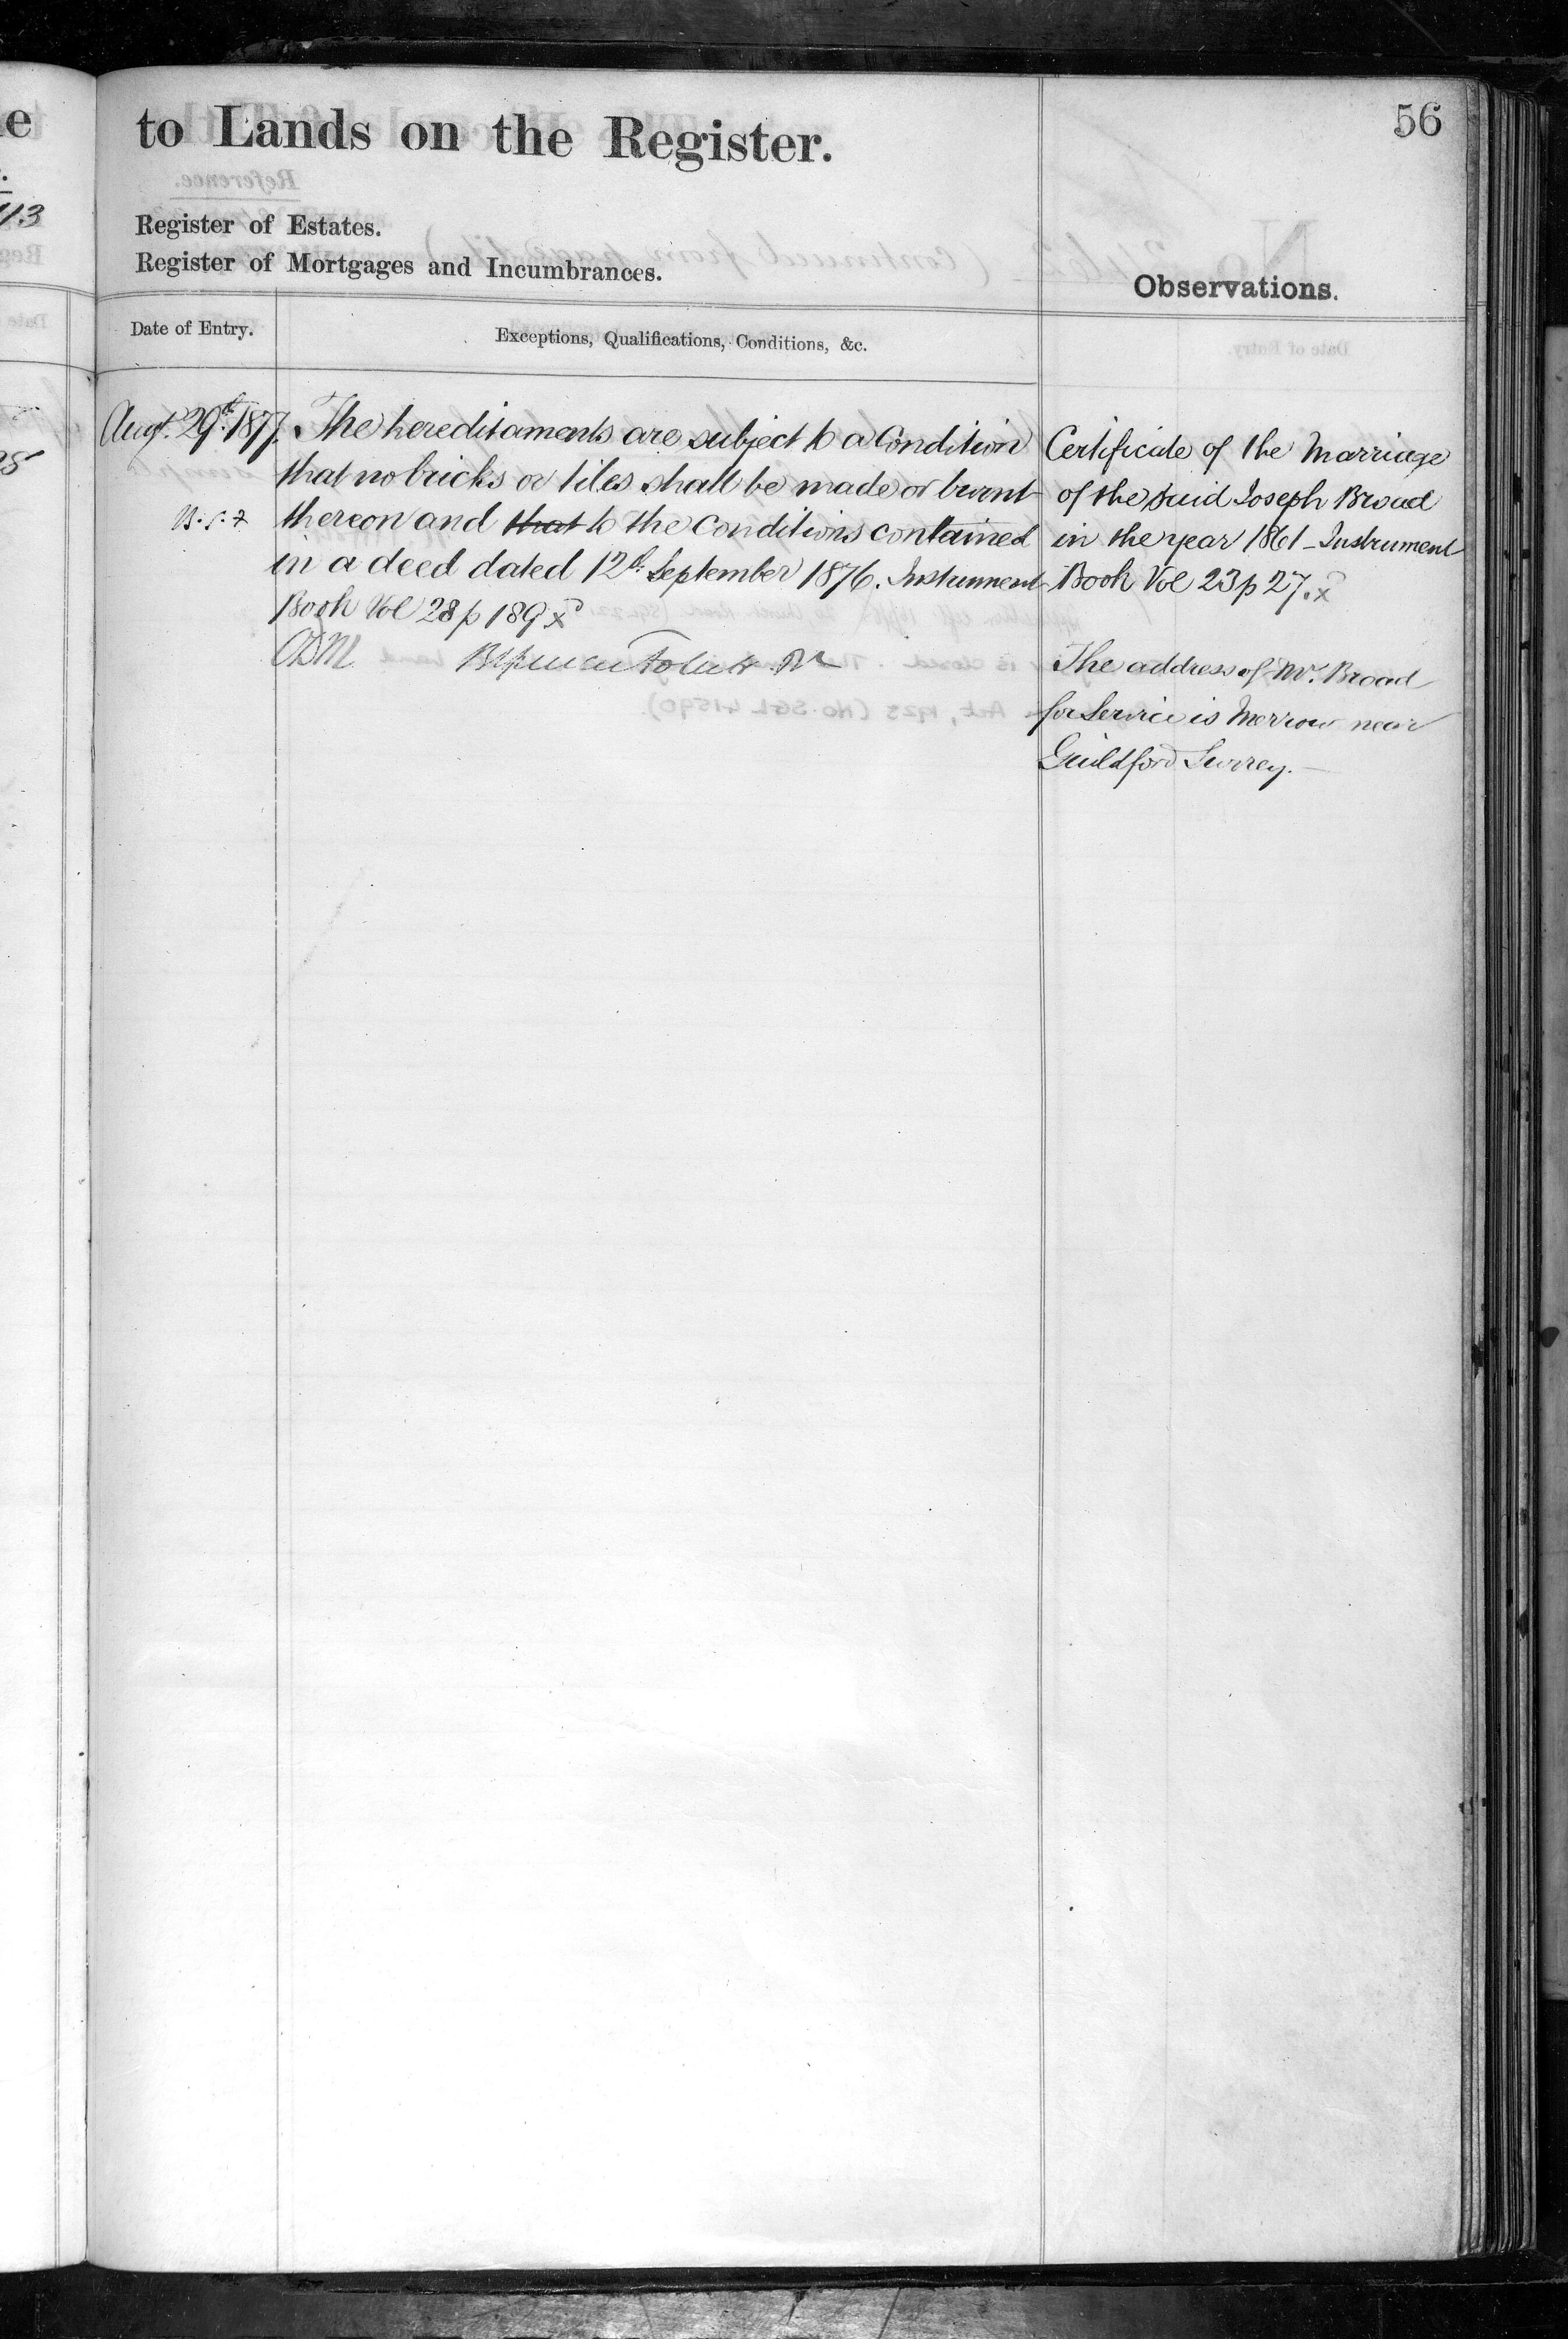 to Lands on the Register.
56
Register of Estates.
Register of Mortgages and Incumbrances.
Observations.
Date of Entry.
Exceptions, Qualifications, Conditions, &c.
Augt. 29th 1877. The hereditaments are subject to a Condition
that no bricks or tiles shall be made or burnt
thereon and that to the Conditions contained
in a deed dated 12th September 1876. Instrument
Book Vol 28 p 189 x
Certificate of the Marriage
of the said Joseph Broad
in the year 1861 - Instrument
Book Vol 23 p 27. x
The address of Mr. Broad
for Service is Merrow near
Guildford Surrey. -